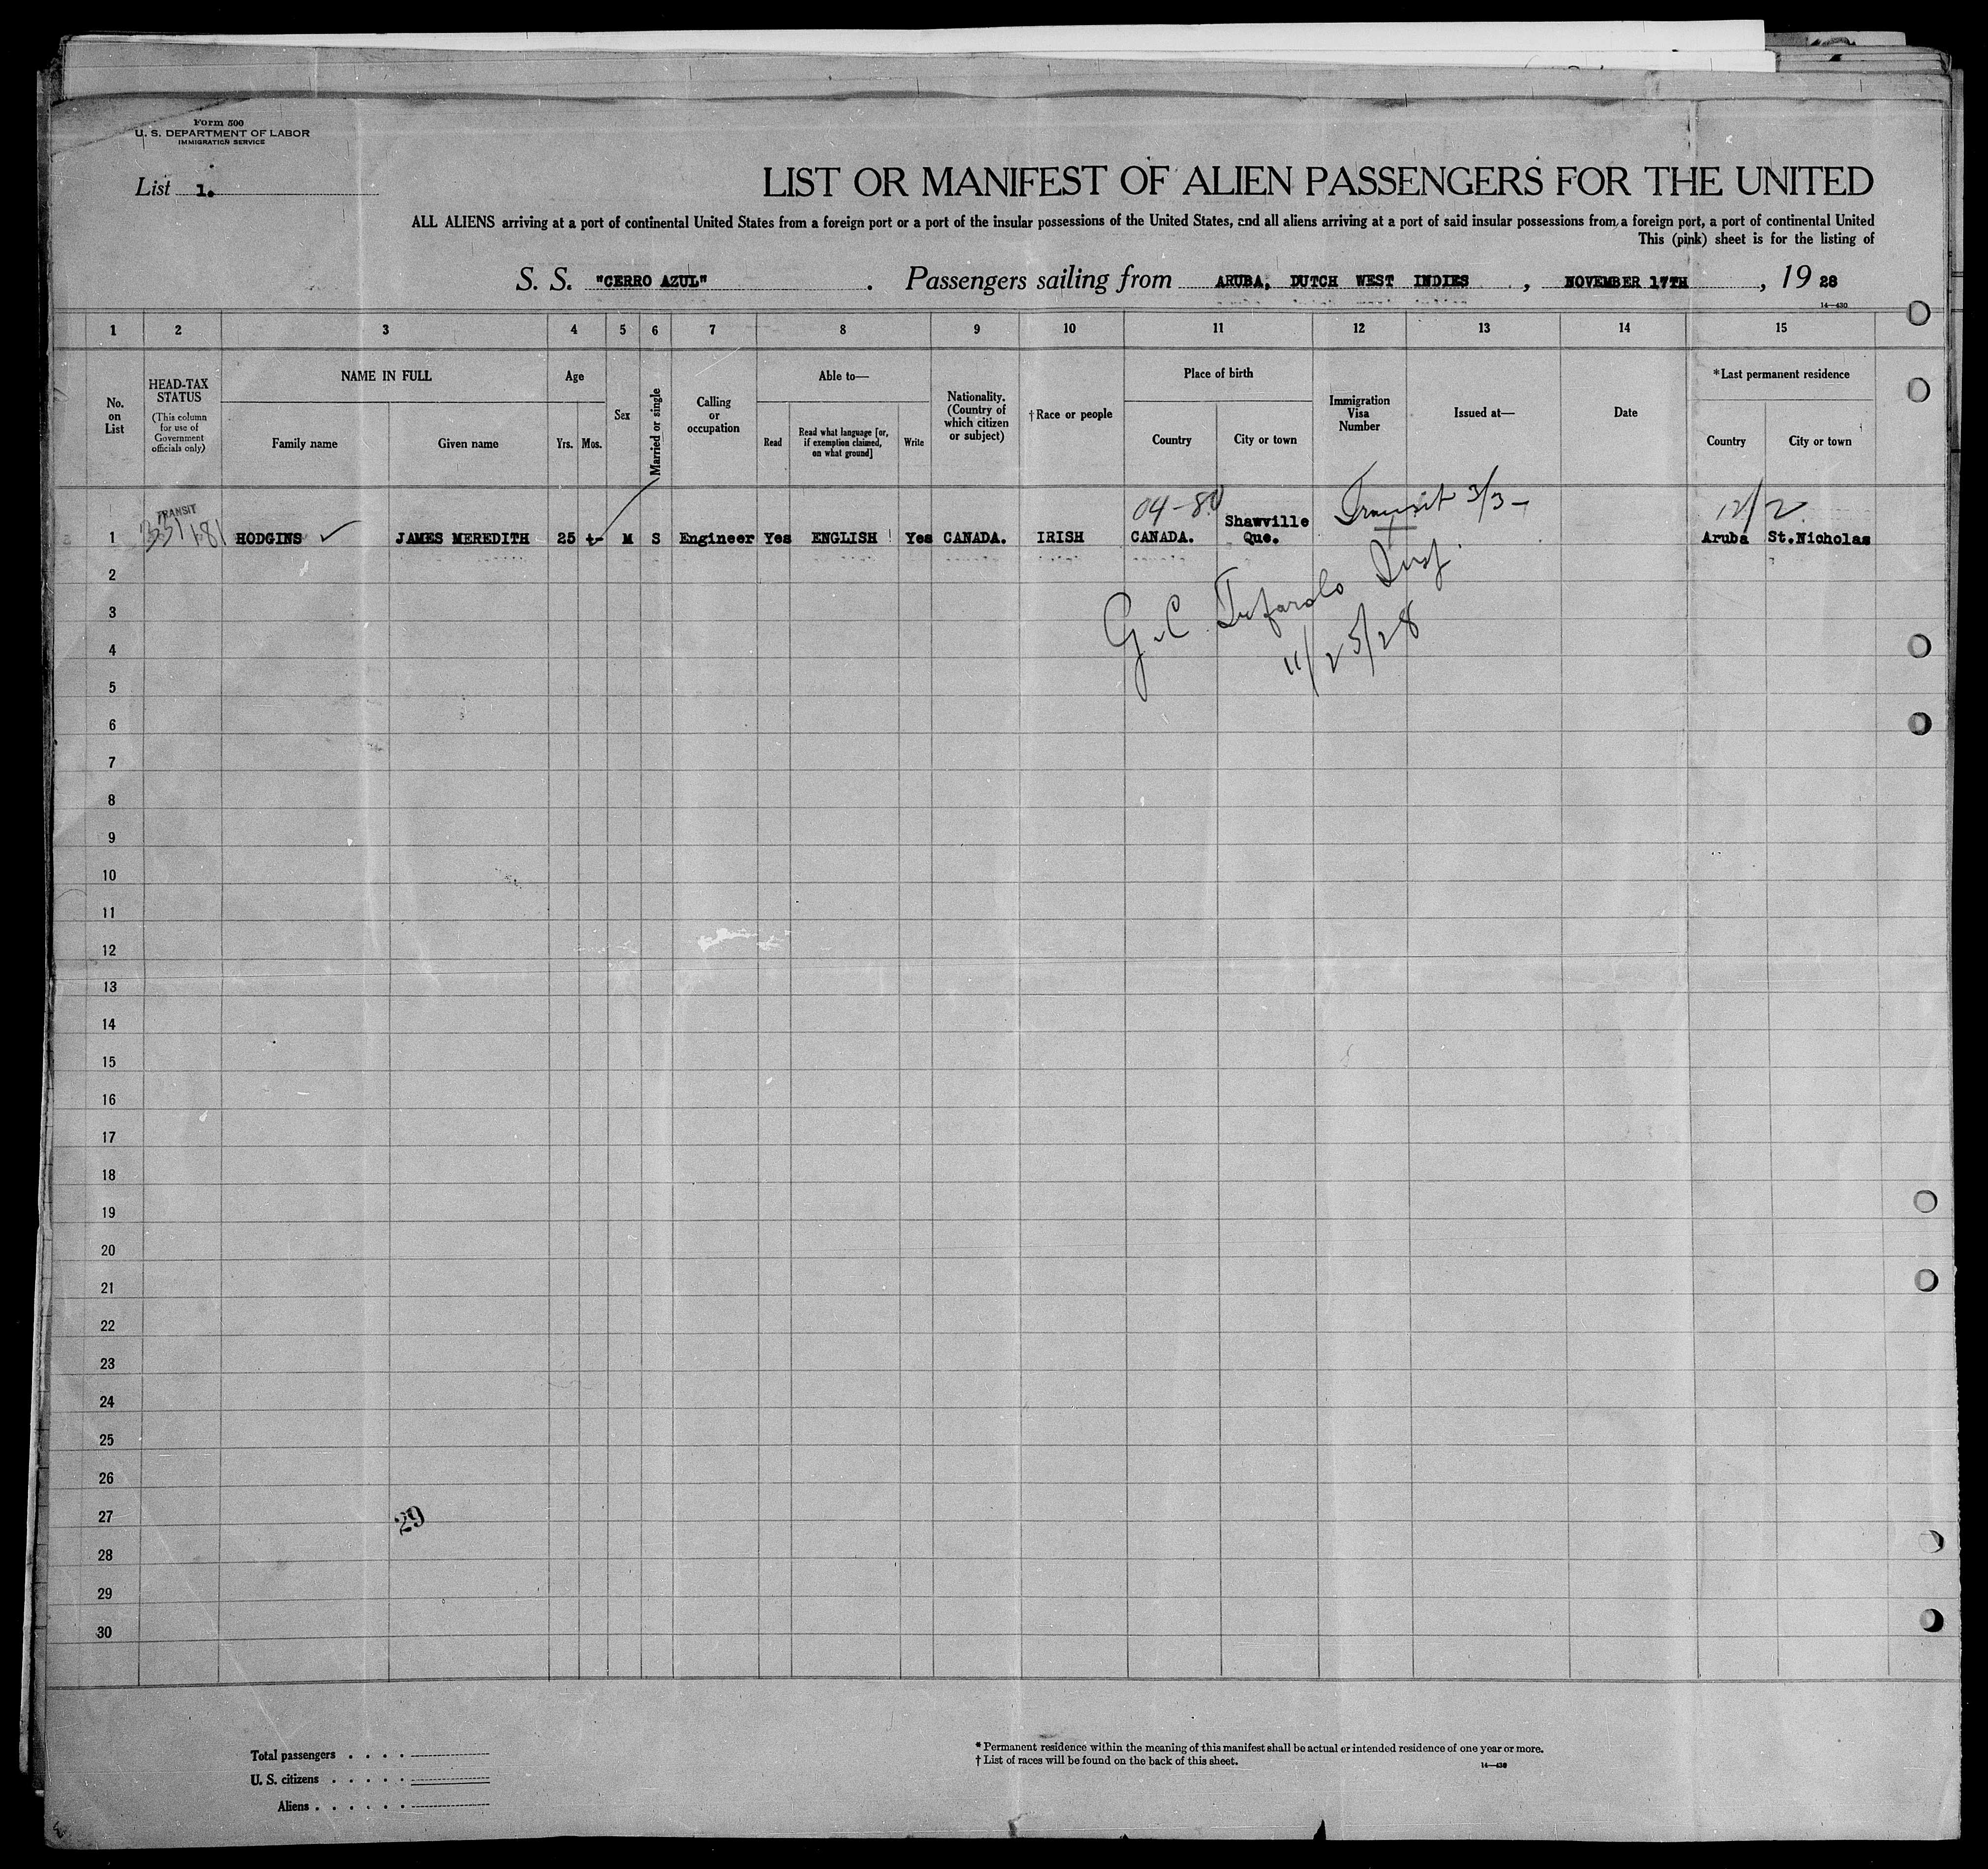 Form 500
U. S. DEPARTMENT OF LABOR
IMMIGRATION SERVICE
List 1.
LIST OR MANIFEST OF ALIEN PASSENGERS FOR THE UNITED
ALL ALIENS arriving at a port of continental United States from a foreign port or a port of the insular possessions of the United States, and all aliens arriving at a port of said insular possessions from a foreign port, a port of continental United
This (pink) sheet is for the listing of
S. S. "CERRO AZUL" . Passengers sailing from ARUBA, DUTCH WEST INDIES , NOVEMBER 17TH , 19 28
14—430
1 2 3 4 5 6 7 8 9 10 11 12 13 14 15
No. on List
HEAD-TAX STATUS
(This column for use of Government officials only)
NAME IN FULL
Family name
Given name
Age
Yrs. Mos.
Sex
Married or single
Calling or occupation
Able to—
Read
Read what language [or, if exemption claimed, on what ground]
Write
Nationality. (Country of which citizen or subject)
† Race or people
Place of birth
Country
City or town
Immigration Visa Number
Issued at—
Date
* Last permanent residence
Country
City or town
TRANSIT
04-80
Transit 3/3 -
12/2
Shawville
1 HODGINS ✓ JAMES MEREDITH 25 M S Engineer Yes ENGLISH Yes CANADA. IRISH CANADA. Que. Aruba St.Nicholas
G. C. Insp.
11/25/28
2
3
4
5
6
7
8
9
10
11
12
13
14
15
16
17
18
19
20
21
22
23
24
25
26
27
29
28
29
30
Total passengers . . . .
U. S. citizens . . . . .
Aliens . . . . . .
* Permanent residence within the meaning of this manifest shall be actual or intended residence of one year or more.
† List of races will be found on the back of this sheet.
14—430